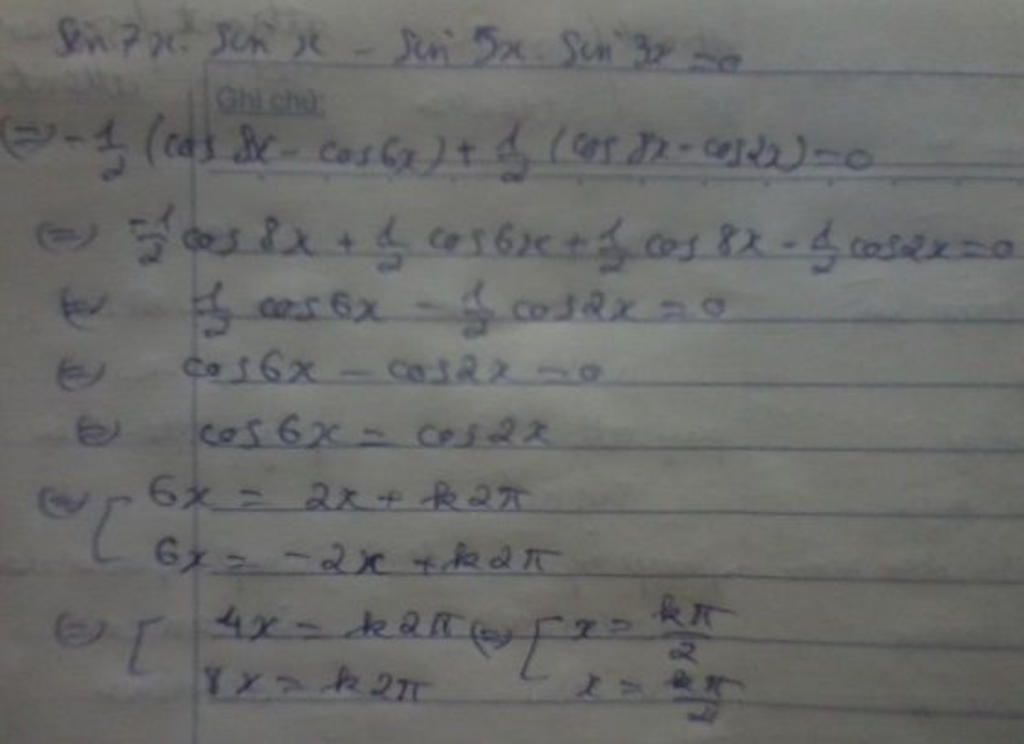 sin 7x . sin x - sin 5x . sin 3x = 0
Ghi chú:
(=) -1/2 (cos 8x - cos 6x) + 1/2 (cos 8x - cos 2x) = 0
(=) -1/2 cos 8x + 1/2 cos 6x + 1/2 cos 8x - 1/2 cos 2x = 0
(=) 1/2 cos 6x - 1/2 cos 2x = 0
(=) cos 6x - cos 2x = 0
(=) cos 6x = cos 2x
(=) [ 6x = 2x + k2π
6x = -2x + k2π
(=) [ 4x = k2π (=) [ x = kπ/2
8x = k2π x = kπ/